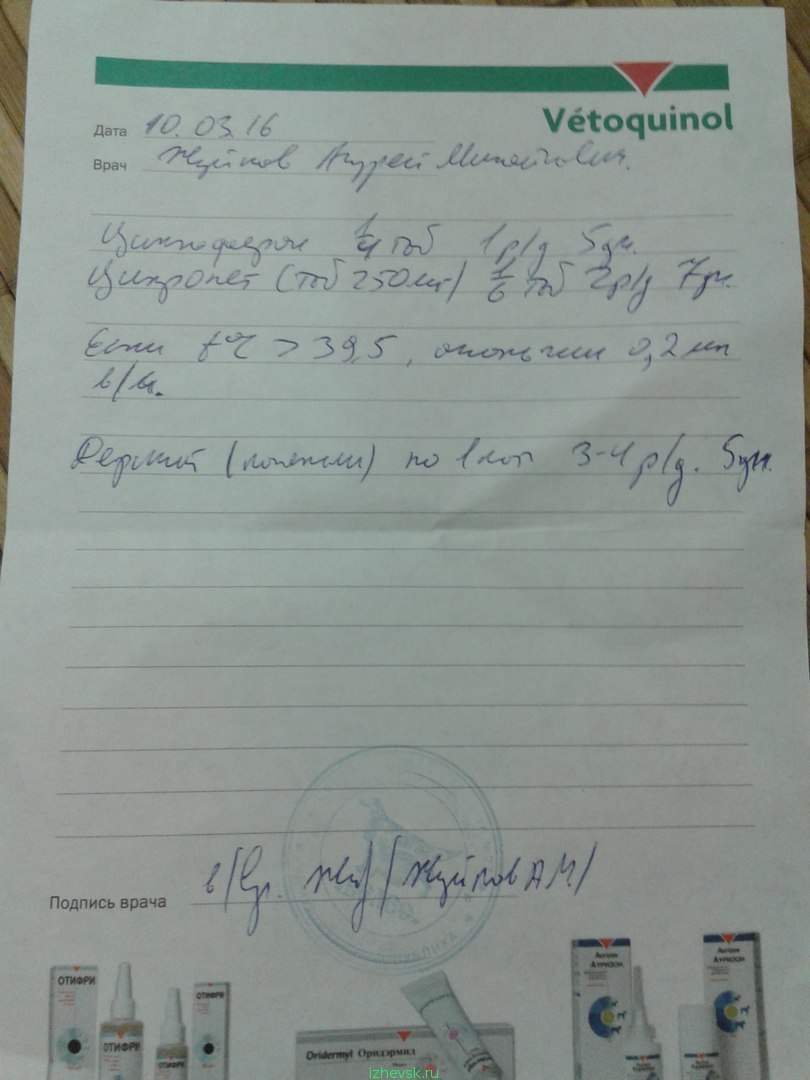 Vétoquinol
Дата 10.03.16
Врач Жуйков Андрей Михайлович.
Циклоферон 1/4 таб 1 р/д 5 дн.
Ципровет (таб 250 мг) 1/6 таб 2 р/д 7 дн.
Если t°C > 39,5, 0,2 мл
в/м.
Деринат (капли) по 1 кап 3-4 р/д. 5 дн.
Подпись врача в/вр. /Жуйков А.М./
ОТИФРИ
ОТИФРИ
ОТИФРИ
Oridermyl Оридермил
izhevsk.ru